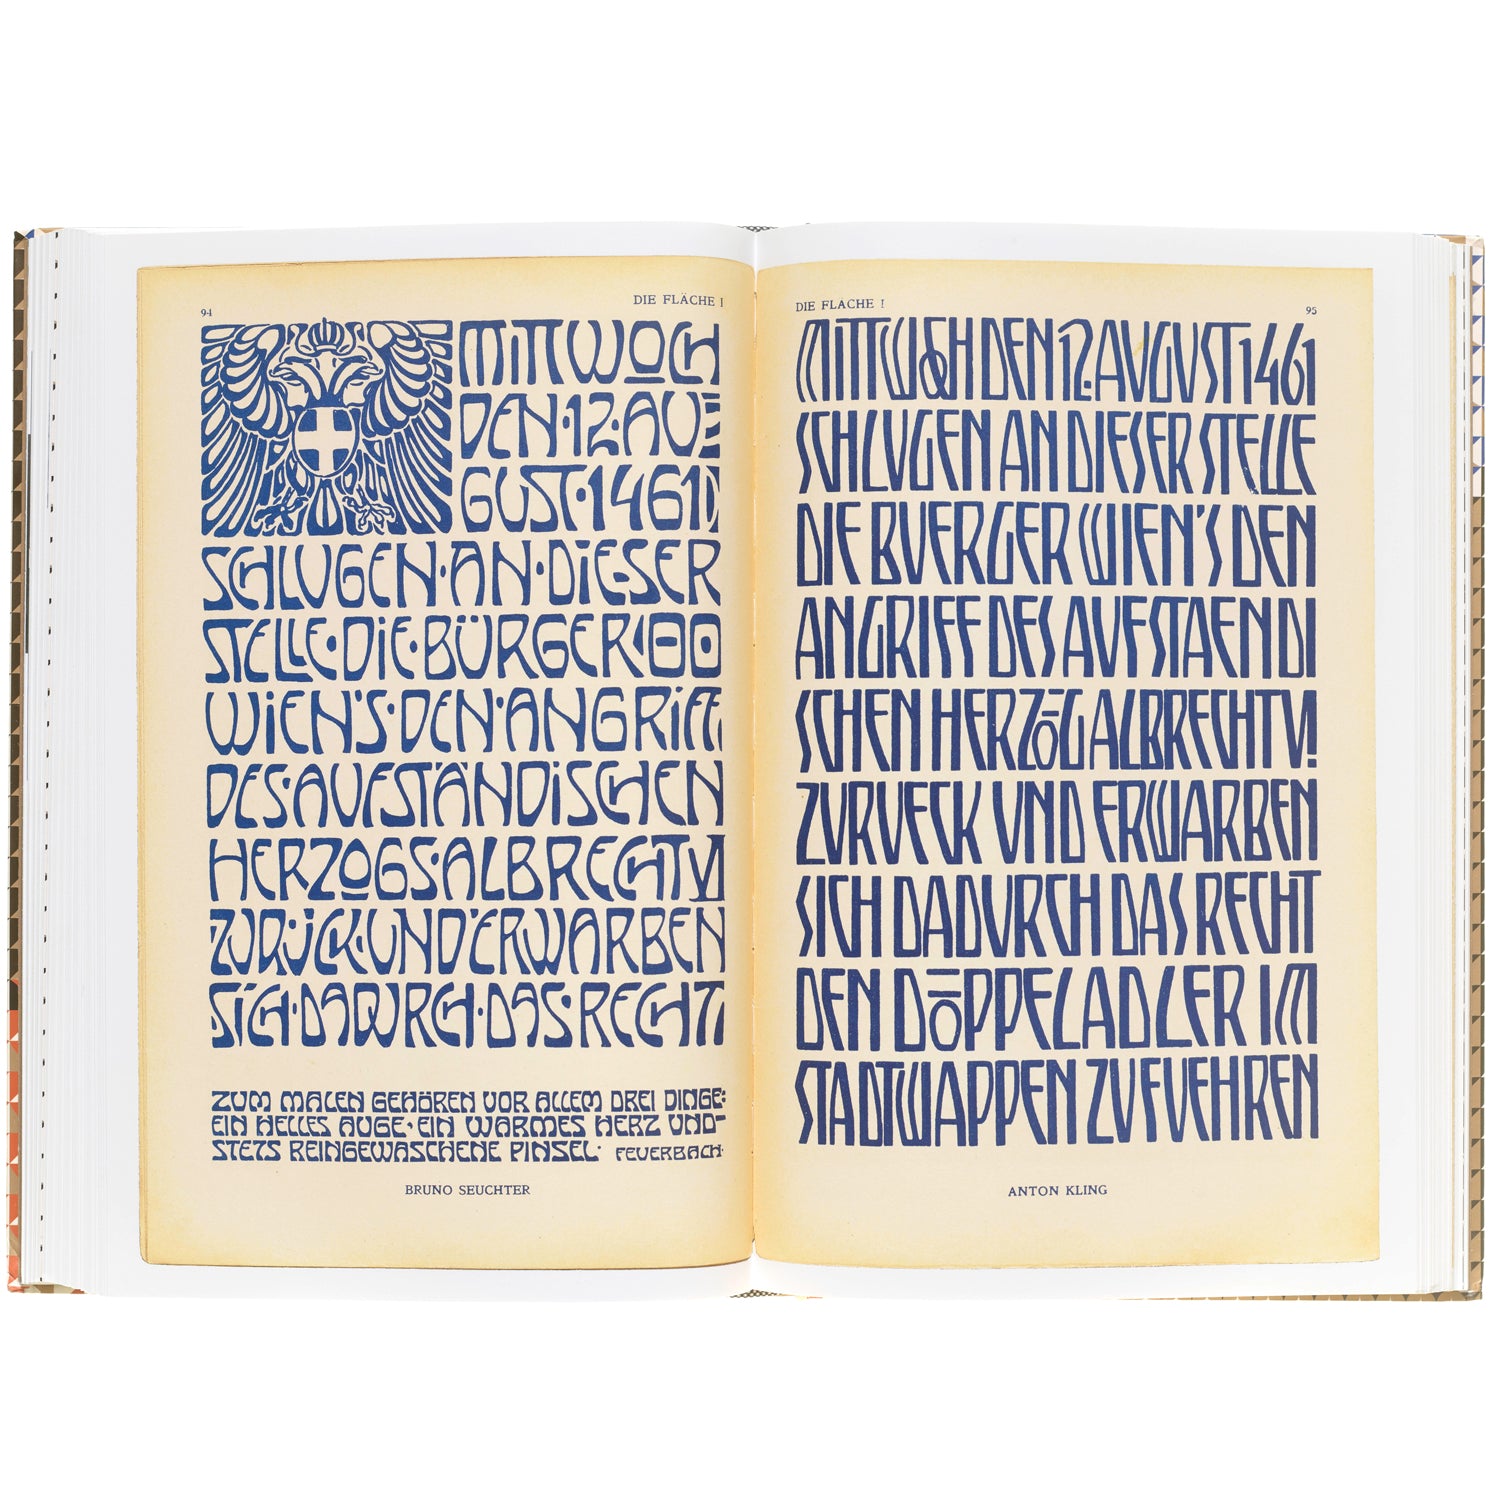 94
DIE FLÄCHE I
MITTWOCH
DEN·12·AU
GUST·1461
SCHLUGEN·AN·DIESER
STELLE·DIE·BÜRGER
WIEN'S·DEN·ANGRIFF
DES·AUFSTÄNDISCHEN
HERZOGS·ALBRECHT VI
ZURÜCK·UND ERWARBEN
SICH·DADURCH·DAS·RECHT
ZUM MALEN GEHÖREN VOR ALLEM DREI DINGE:
EIN HELLES AUGE·EIN WARMES HERZ UND-
STETS REINGEWASCHENE PINSEL· FEUERBACH·
BRUNO SEUCHTER
DIE FLÄCHE I
95
MITTWOCH DEN 12. AUGUST 1461
SCHLUGEN AN DIESER STELLE
DIE BUERGER WIEN'S DEN
ANGRIFF DES AUFSTAENDI
SCHEN HERZOG ALBRECHT VI
ZURUECK UND ERWARBEN
SICH DADURCH DAS RECHT
DEN DOPPELADLER IM
STADTWAPPEN ZU FUEHREN
ANTON KLING